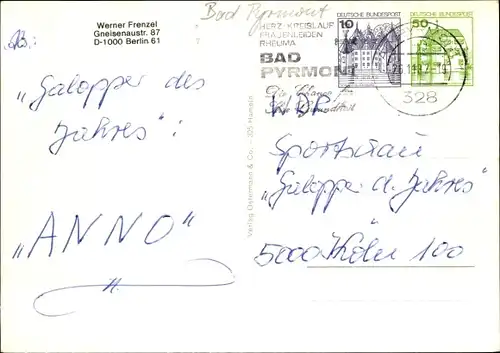 Bad Pyrmont
Werner Frenzel
Gneisenaustr. 87
D-1000 Berlin 61
"Galopper des
Jahres":
"ANNO"
Verlag Ostermann & Co. - 325 Hameln
HERZ-KREISLAUF
FRAUENLEIDEN
RHEUMA
BAD
PYRMONT
10 DEUTSCHE BUNDESPOST
50 DEUTSCHE BUNDESPOST
328
WDR
Sportschau
"Galopper d. Jahres"
5000 Köln 100